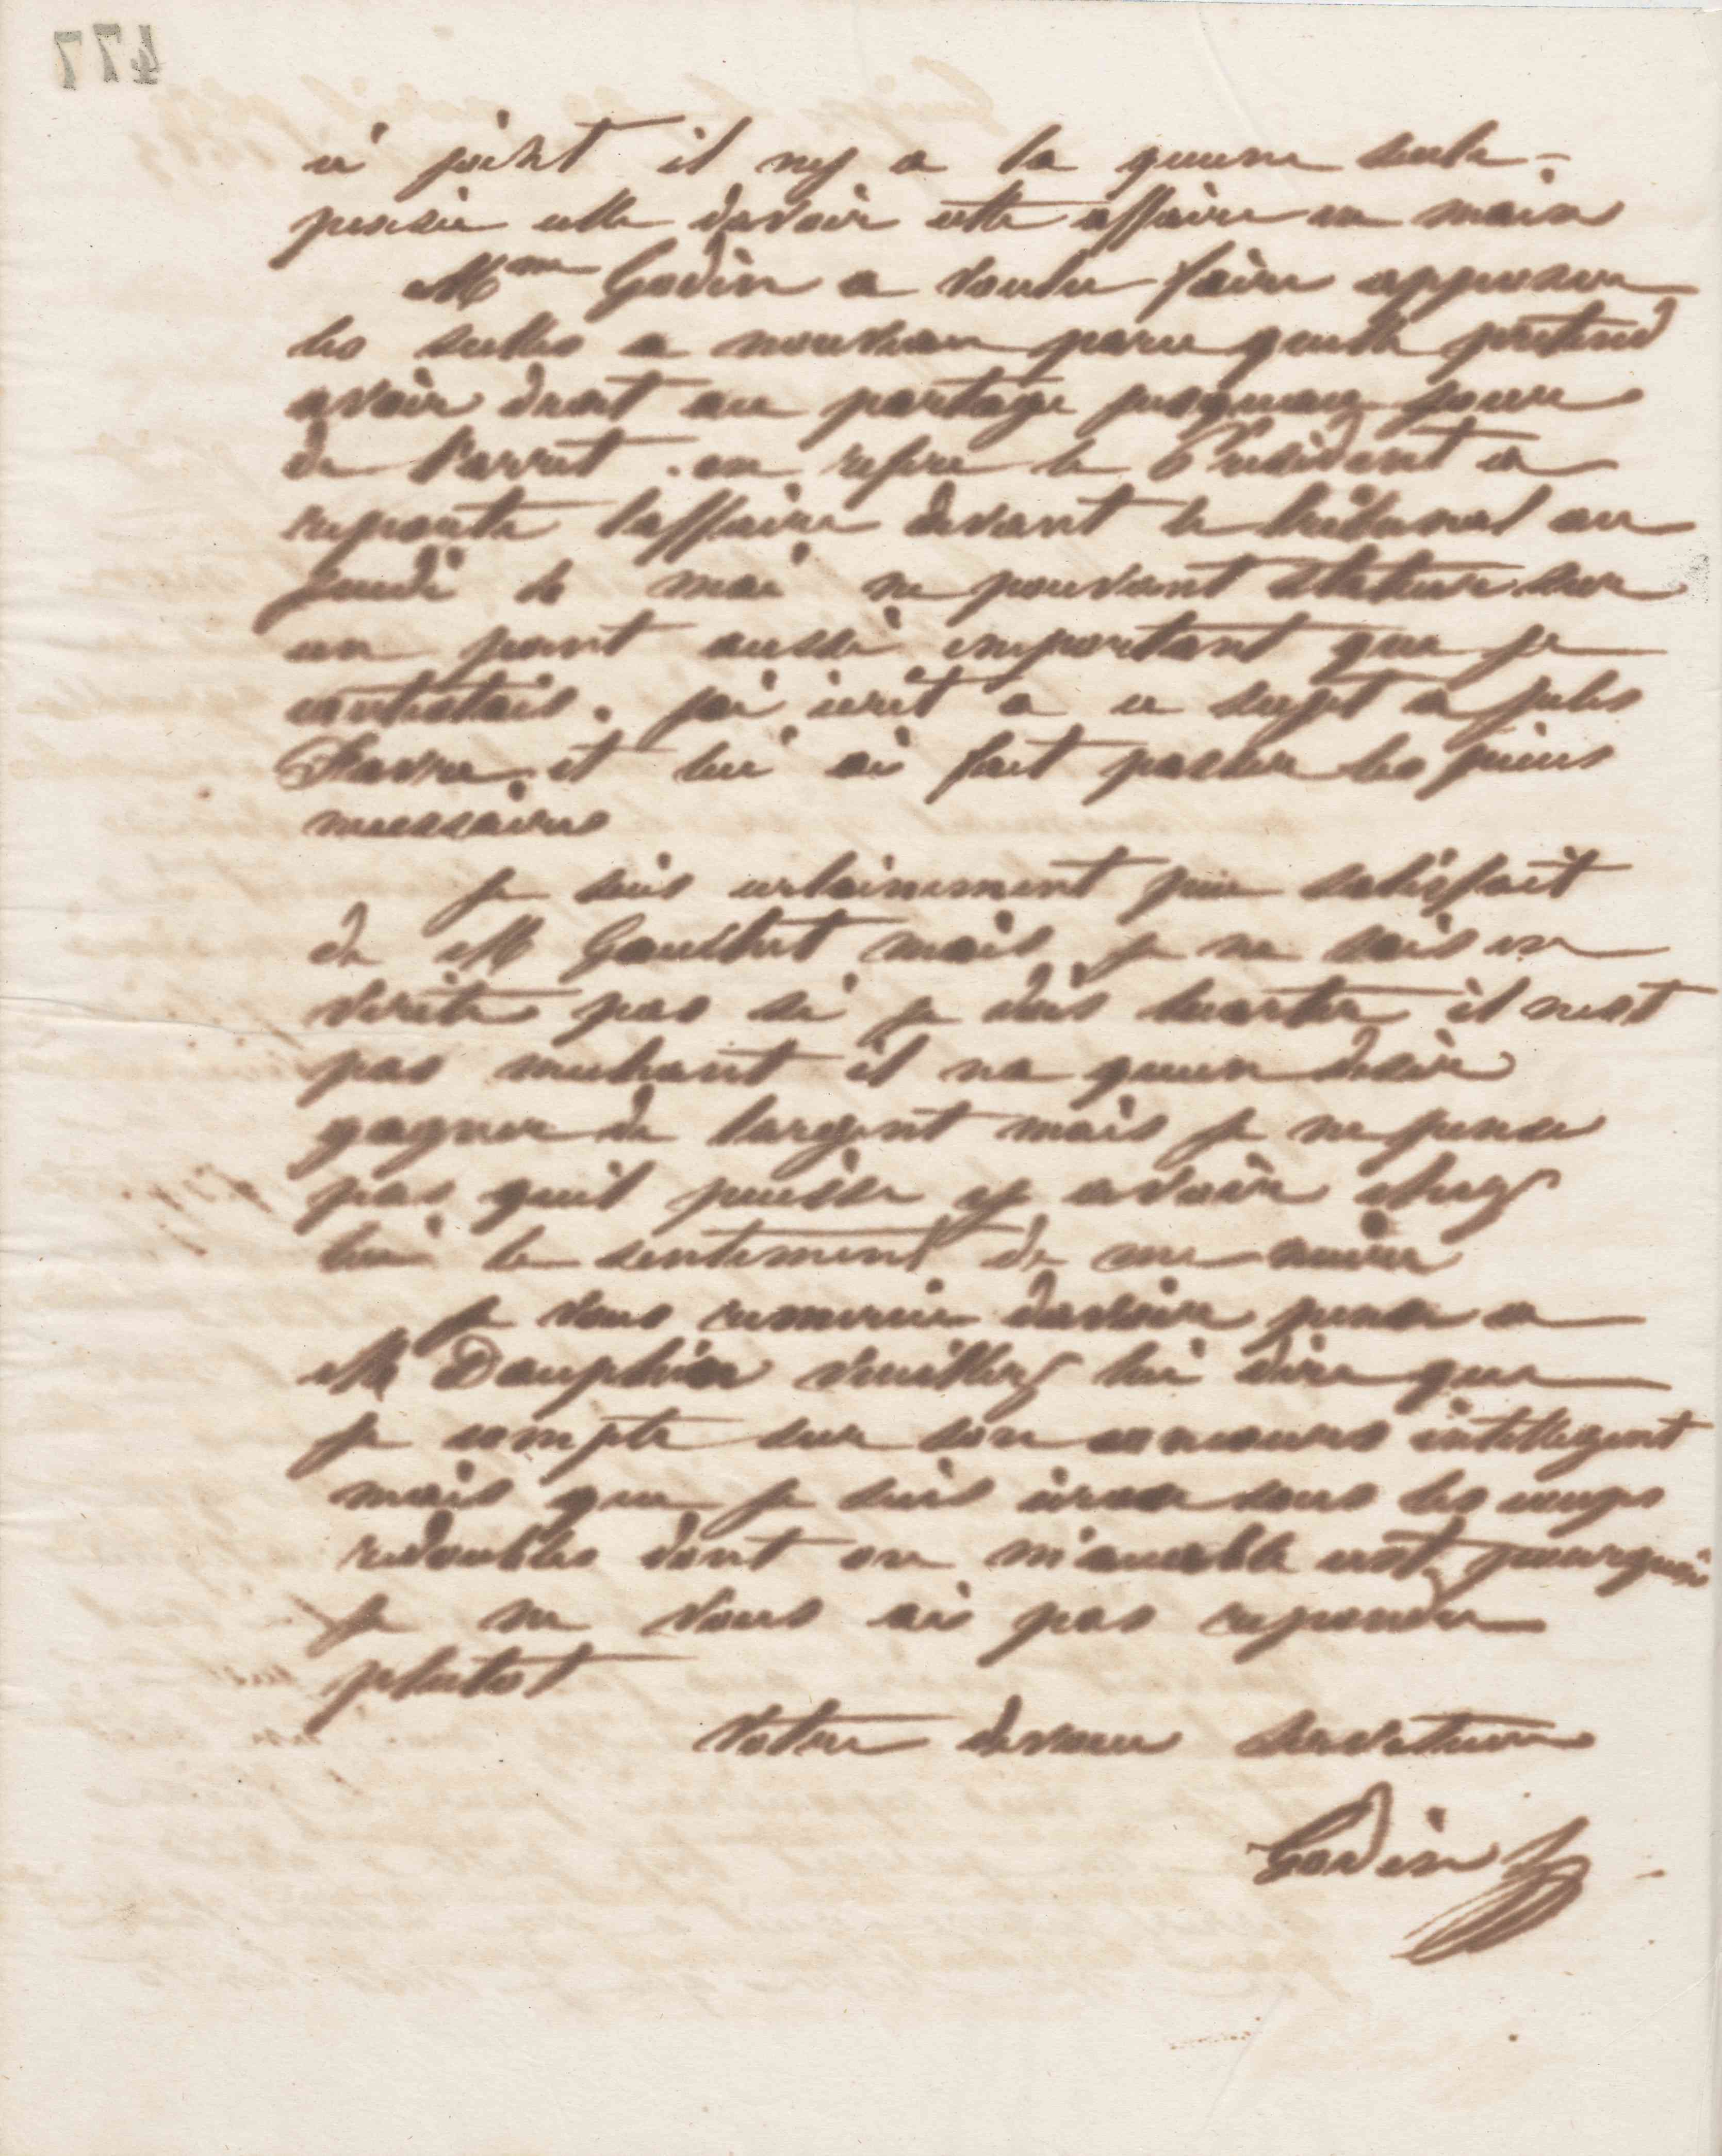 477
ci joint il ny a la quune seule
pensée celle davoir cette affaire en main
Mme Godin a voulu faire apposer
les scelles a nouveau parce quelle pretend
avoir droit au partage jusquau jour
de l'arret . en refere le President a
reporte laffaire devant le tribunal au
jeudi de mai ne pouvant statuer sur
un point aussi important que je
contestais. jai ecrit a ce sujet a jules
Favre et lui ai fait passer les pieces
necessaires
je suis certainement peu satisfait
de M mais je ne sais en
verite pas si je dois lecarter il nest
pas mechant il na quun desir
gagner de largent mais je ne pense
pas quil puisse y avoir chez
lui le sentiment de me nuire
je vous remercie davoir pense a
M Dauphin veuillez lui dire que
je compte sur son concours intelligent
mais que je suis ecrase sous les coups
redoubles dont on m'accable cest pourquoi
je ne vous ai pas repondu
plutot
Votre devoue serviteur
Godin